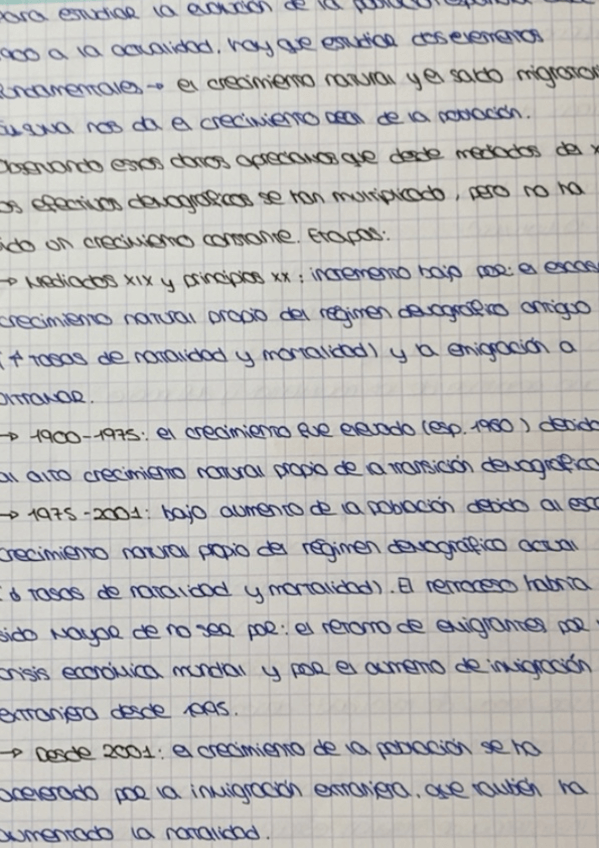 para estudiar la evolución de la población español
1900 a la actualidad, hay que estudiar dos elementos
fundamentales → el crecimiento natural y el saldo migrator
nos da el crecimiento real de la población.
Observando estos datos apreciamos que desde mediados del x
os efectivos demográficos se han multiplicado, pero no ha
ido un crecimiento constante. Etapas:
→ Mediados XIX y principios XX: incremento bajo por: el escas
crecimiento natural propio del régimen demográfico antiguo
(↑ tasas de natalidad y mortalidad) y la emigración a
ultramar.
→ 1900-1975: el crecimiento fue elevado (esp. 1960) debido
al alto crecimiento natural propio de la transición demográfica
→ 1975-2001: bajo aumento de la población debido al esca
crecimiento natural propio del régimen demográfico actual
(↓ tasas de natalidad y mortalidad). El retroceso habría
sido mayor de no ser por: el retorno de emigrantes por
crisis económica mundial y por el aumento de inmigración
extranjera desde 1995.
→ Desde 2001: el crecimiento de la población se ha
acelerado por la inmigración extranjera, que también ha
aumentado la natalidad.